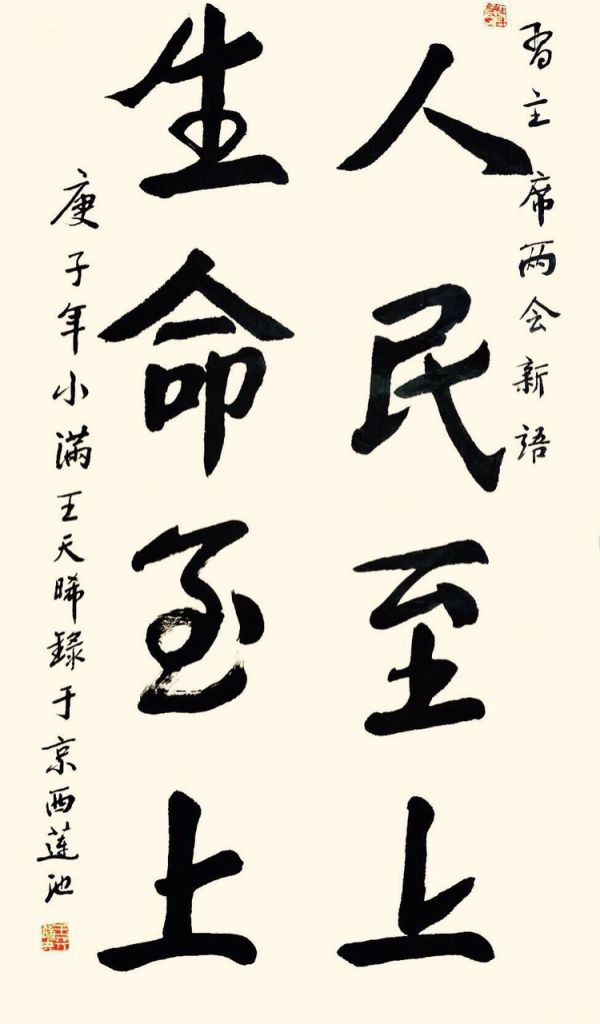 习主席两会新語
人民至上
生命至上
庚子年小满王天晞録于京西蓮池